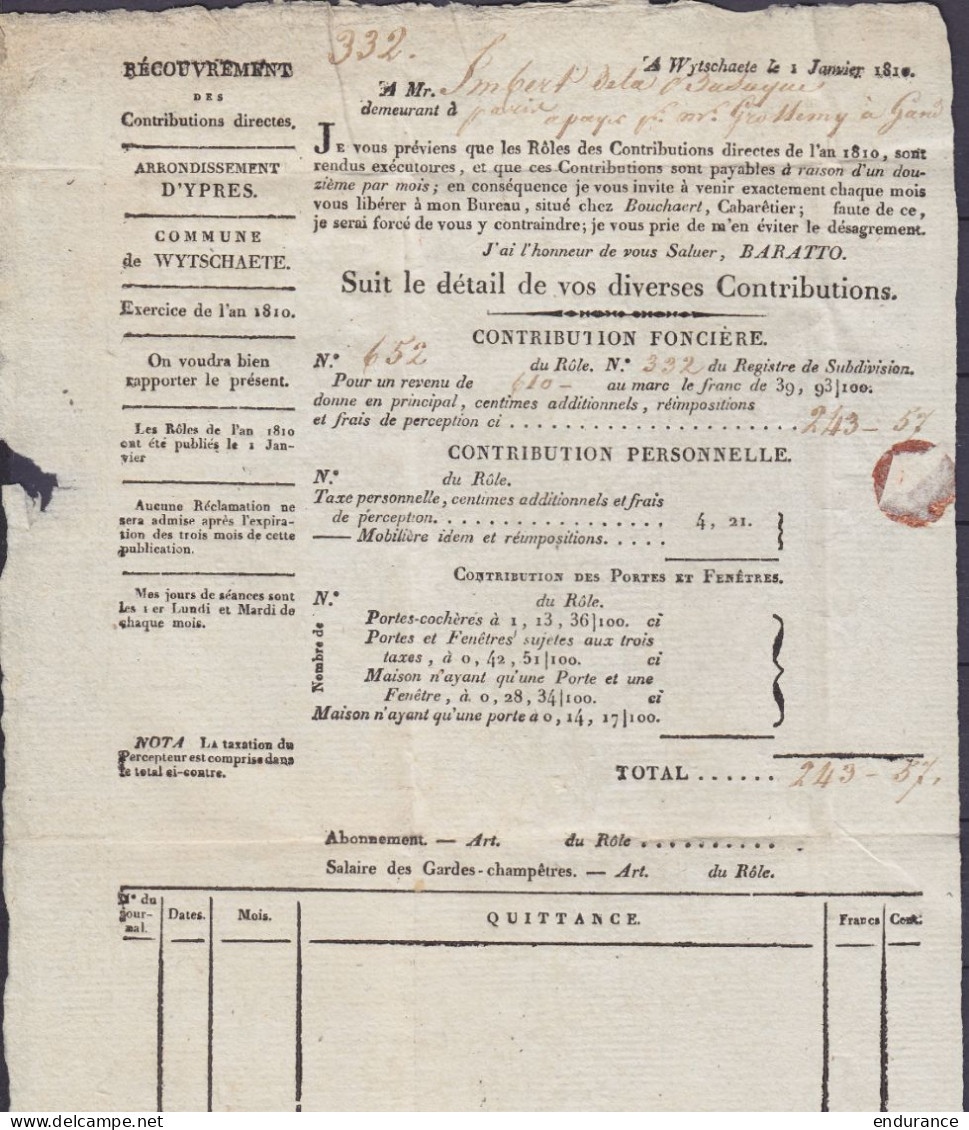 332.
RÉCOUVREMENT
DES
Contributions directes.
ARRONDISSEMENT
D'YPRES.
COMMUNE
de WYTSCHAETE.
Exercice de l'an 1810.
On voudra bien
rapporter le présent.
Les Rôles de l'an 1810
ont été publiés le 1 Jan-
vier
Aucune Réclamation ne
sera admise après l'expira-
tion des trois mois de cette
publication.
Mes jours de séances sont
les 1 er Lundi et Mardi de
chaque mois.
NOTA LA taxation du
Percepteur est comprise dans
le total ci-contre.
A Wytschaete le 1 Janvier 1810.
A Mr. Imbert Dela
demeurant à paris a payé pr mr. Grottemy à Gand
JE vous préviens que les Rôles des Contributions directes de l'an 1810, sont
rendus exécutoires, et que ces Contributions sont payables à raison d'un dou-
zième par mois; en conséquence je vous invite à venir exactement chaque mois
vous libérer à mon Bureau, situé chez Bouchaert, Cabarêtier; faute de ce,
je serai forcé de vous y contraindre; je vous prie de m'en éviter le désagrement.
J'ai l'honneur de vous Saluer, BARATTO.
Suit le détail de vos diverses Contributions.
CONTRIBUTION FONCIÈRE.
N.° 652 du Rôle. N.° 332 du Registre de Subdivision.
Pour un revenu de 610 - au marc le franc de 39, 93|100.
donne en principal, centimes additionnels, réimpositions
et frais de perception ci . . . . . . . . . . . . . . . . . . . . . . 243 - 57
CONTRIBUTION PERSONNELLE.
N.° du Rôle.
Taxe personnelle, centimes additionnels et frais
de perception. . . . . . . . . . . . . . . . . . 4, 21. }
— Mobilière idem et réimpositions. . . . . .
CONTRIBUTION DES PORTES ET FENÊTRES.
N.° du Rôle.
Nombre de
Portes-cochères à 1, 13, 36|100. ci
Portes et Fenêtres sujetes aux trois
taxes, à 0, 42, 51|100. ci
Maison n'ayant qu'une Porte et une
Fenêtre, à 0, 28, 34|100. ci
Maison n'ayant qu'une porte à 0, 14, 17|100.
TOTAL . . . . . . 243 - 57.
Abonnement. — Art. du Rôle . . . . . . . . . .
Salaire des Gardes-champêtres. — Art. du Rôle.
N° du
jour-
nal. Dates. Mois. QUITTANCE. Francs Cent.
endurance